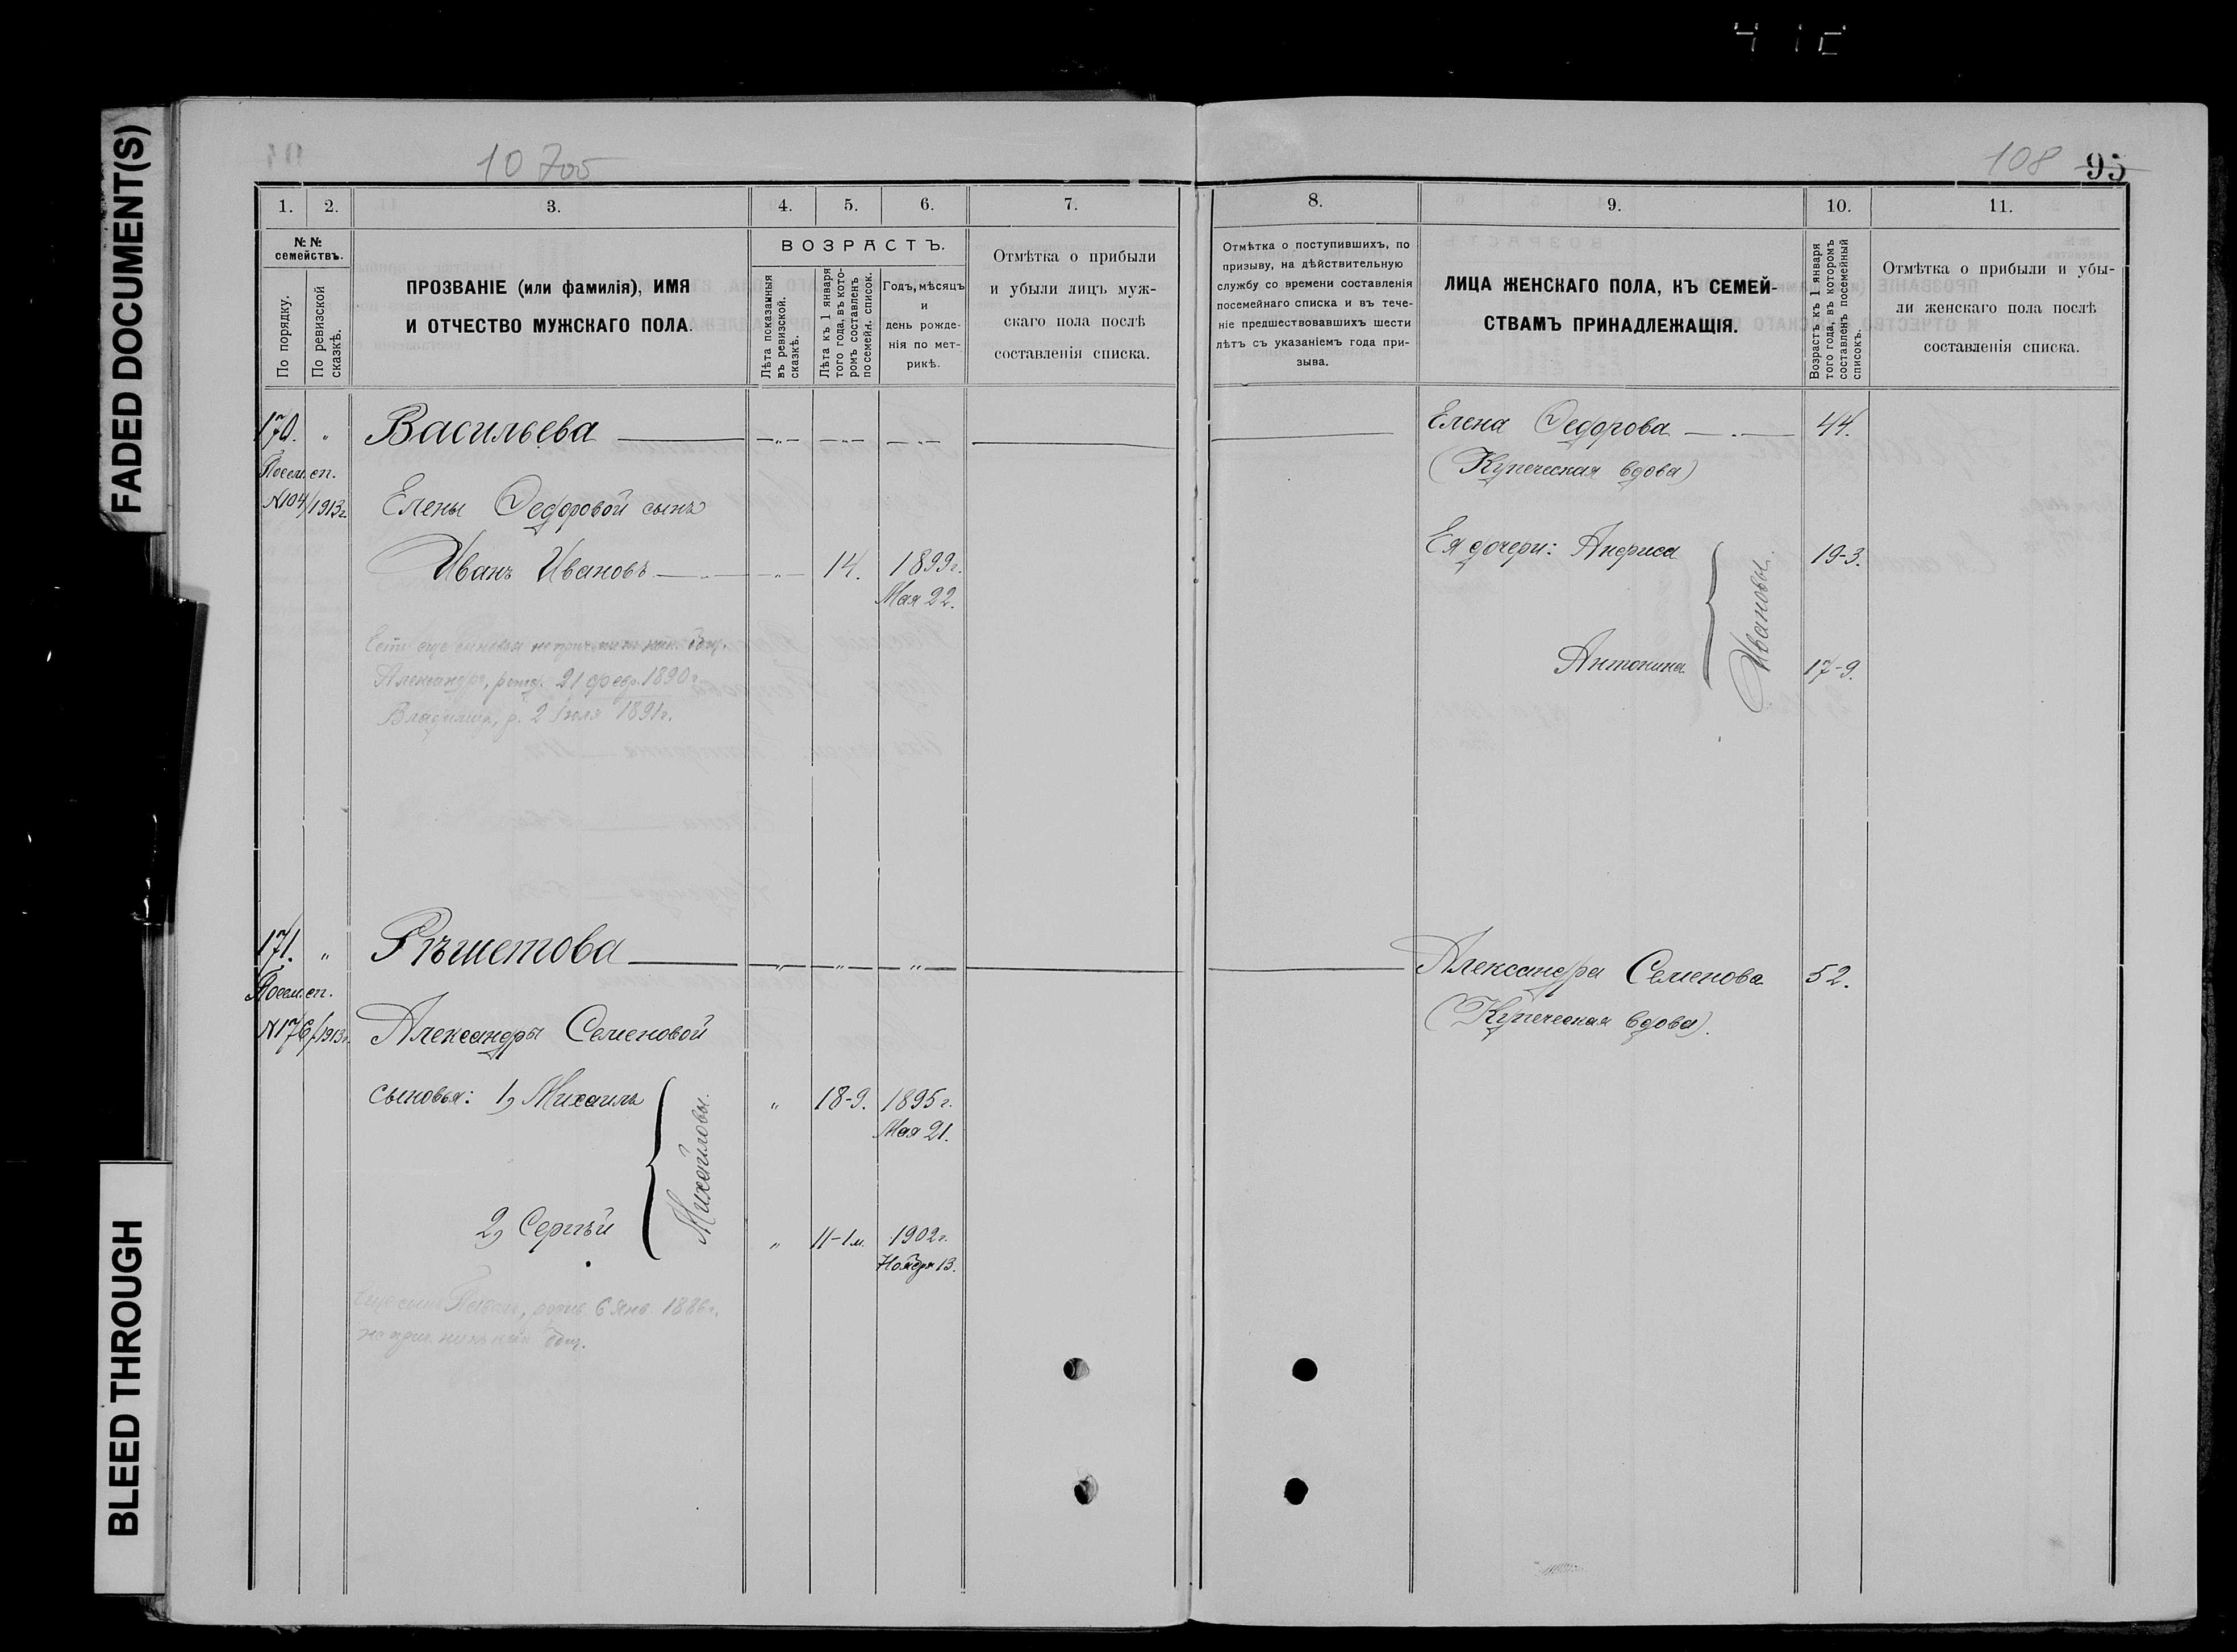 FADED DOCUMENT(S)
BLEED THROUGH
10 700
108 95
1. 2. 3. 4. 5. 6. 7.
№ № семействъ.
По порядку.
По ревизской сказкѣ.
ПРОЗВАНІЕ (или фамилія), ИМЯ
И ОТЧЕСТВО МУЖСКАГО ПОЛА.
ВОЗРАСТЪ.
Лѣта показанныя въ ревизской сказкѣ.
Лѣта къ 1 января того года, въ кото-ромъ составленъ посемейн. список.
Годъ, мѣсяцъ
и
день рожде-
нія по мет-
рикѣ.
Отмѣтка о прибыли
и убыли лицъ муж-
скаго пола послѣ
составленія списка.
170. „ Васильева
Посем. сп.
№104/1913г.
Елены Ѳедоровой сынъ
Иванъ Ивановъ 14. 1899г.
Мая 22.
Александръ, рожд. 21 февр. 1890г.
Владиміръ, р. 2 Іюля 1891г.
171. „ Рѣшетова
Посем. сп.
№176/1913г.
Александры Семеновой
сыновья: 1, Михаилъ „ 18-9. 1895г.
Мая 21.
Михайловы.
2, Сергѣй „ 11-1м. 1902г.
Ноября 13.
Еще сынъ Павелъ, родив. 6 Янв. 1886г.
8. 9. 10. 11.
Отмѣтка о поступившихъ, по
призыву, на дѣйствительную
службу со времени составленія
посемейнаго списка и въ тече-
ніе предшествовавшихъ шести
лѣтъ съ указаніемъ года при-
зыва.
ЛИЦА ЖЕНСКАГО ПОЛА, КЪ СЕМЕЙ-
СТВАМЪ ПРИНАДЛЕЖАЩІЯ.
Возрастъ къ 1 января того года, въ которомъ составленъ посемейный списокъ.
Отмѣтка о прибыли и убы-
ли женскаго пола послѣ
составленія списка.
Елена Ѳедорова 44.
(Купеческая вдова)
Ея дочери: Анфиса 19-3.
Ивановы.
Антонина 17-9.
Александра Семенова 52.
(Купеческая вдова).